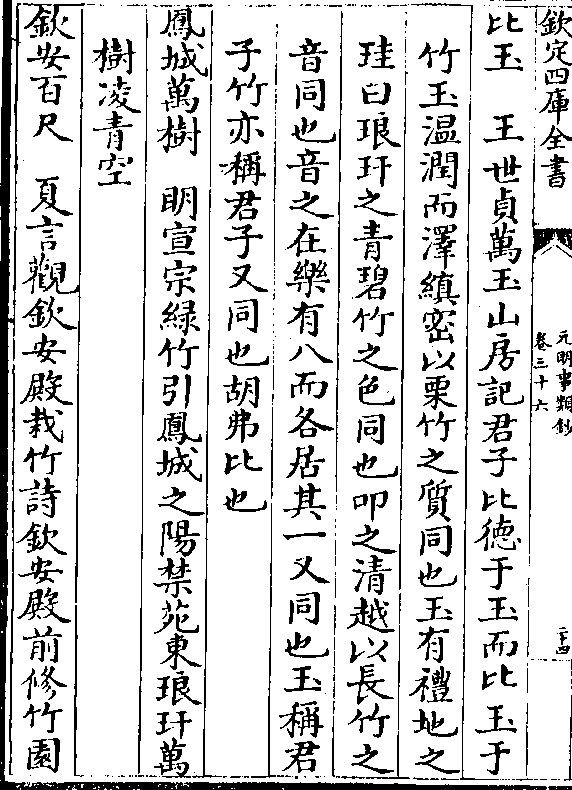 欽定四庫全書
元明事類鈔
卷三十六
二十四
比玉　王世貞萬玉山房記君子比德于玉而比玉于
竹玉温潤而澤縝密以栗竹之質同也玉有禮地之
珪曰琅玕之青碧竹之色同也叩之清越以長竹之
音同也音之在樂有八而各居其一又同也玉稱君
子竹亦稱君子又同也胡弗比也
鳳城萬樹　明宣宗緑竹引鳳城之陽禁苑東琅玕萬
樹凌青空
欽安百尺　夏言觀欽安殿栽竹詩欽安殿前修竹園